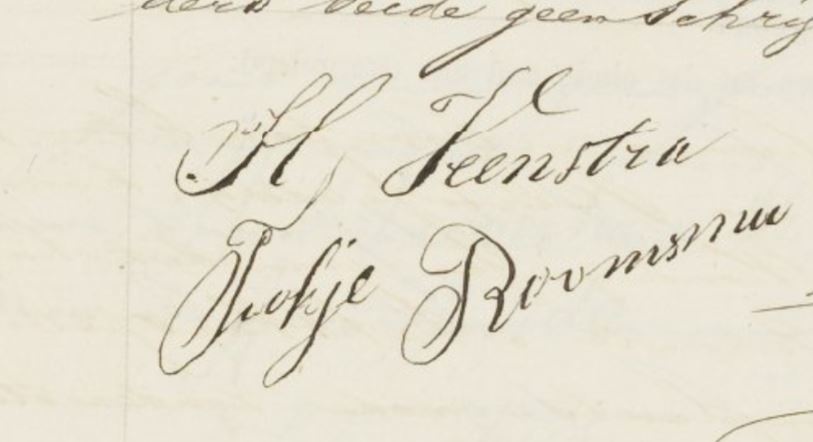 ders beide geen schrij
H Veenstra
Fokje Roomsma